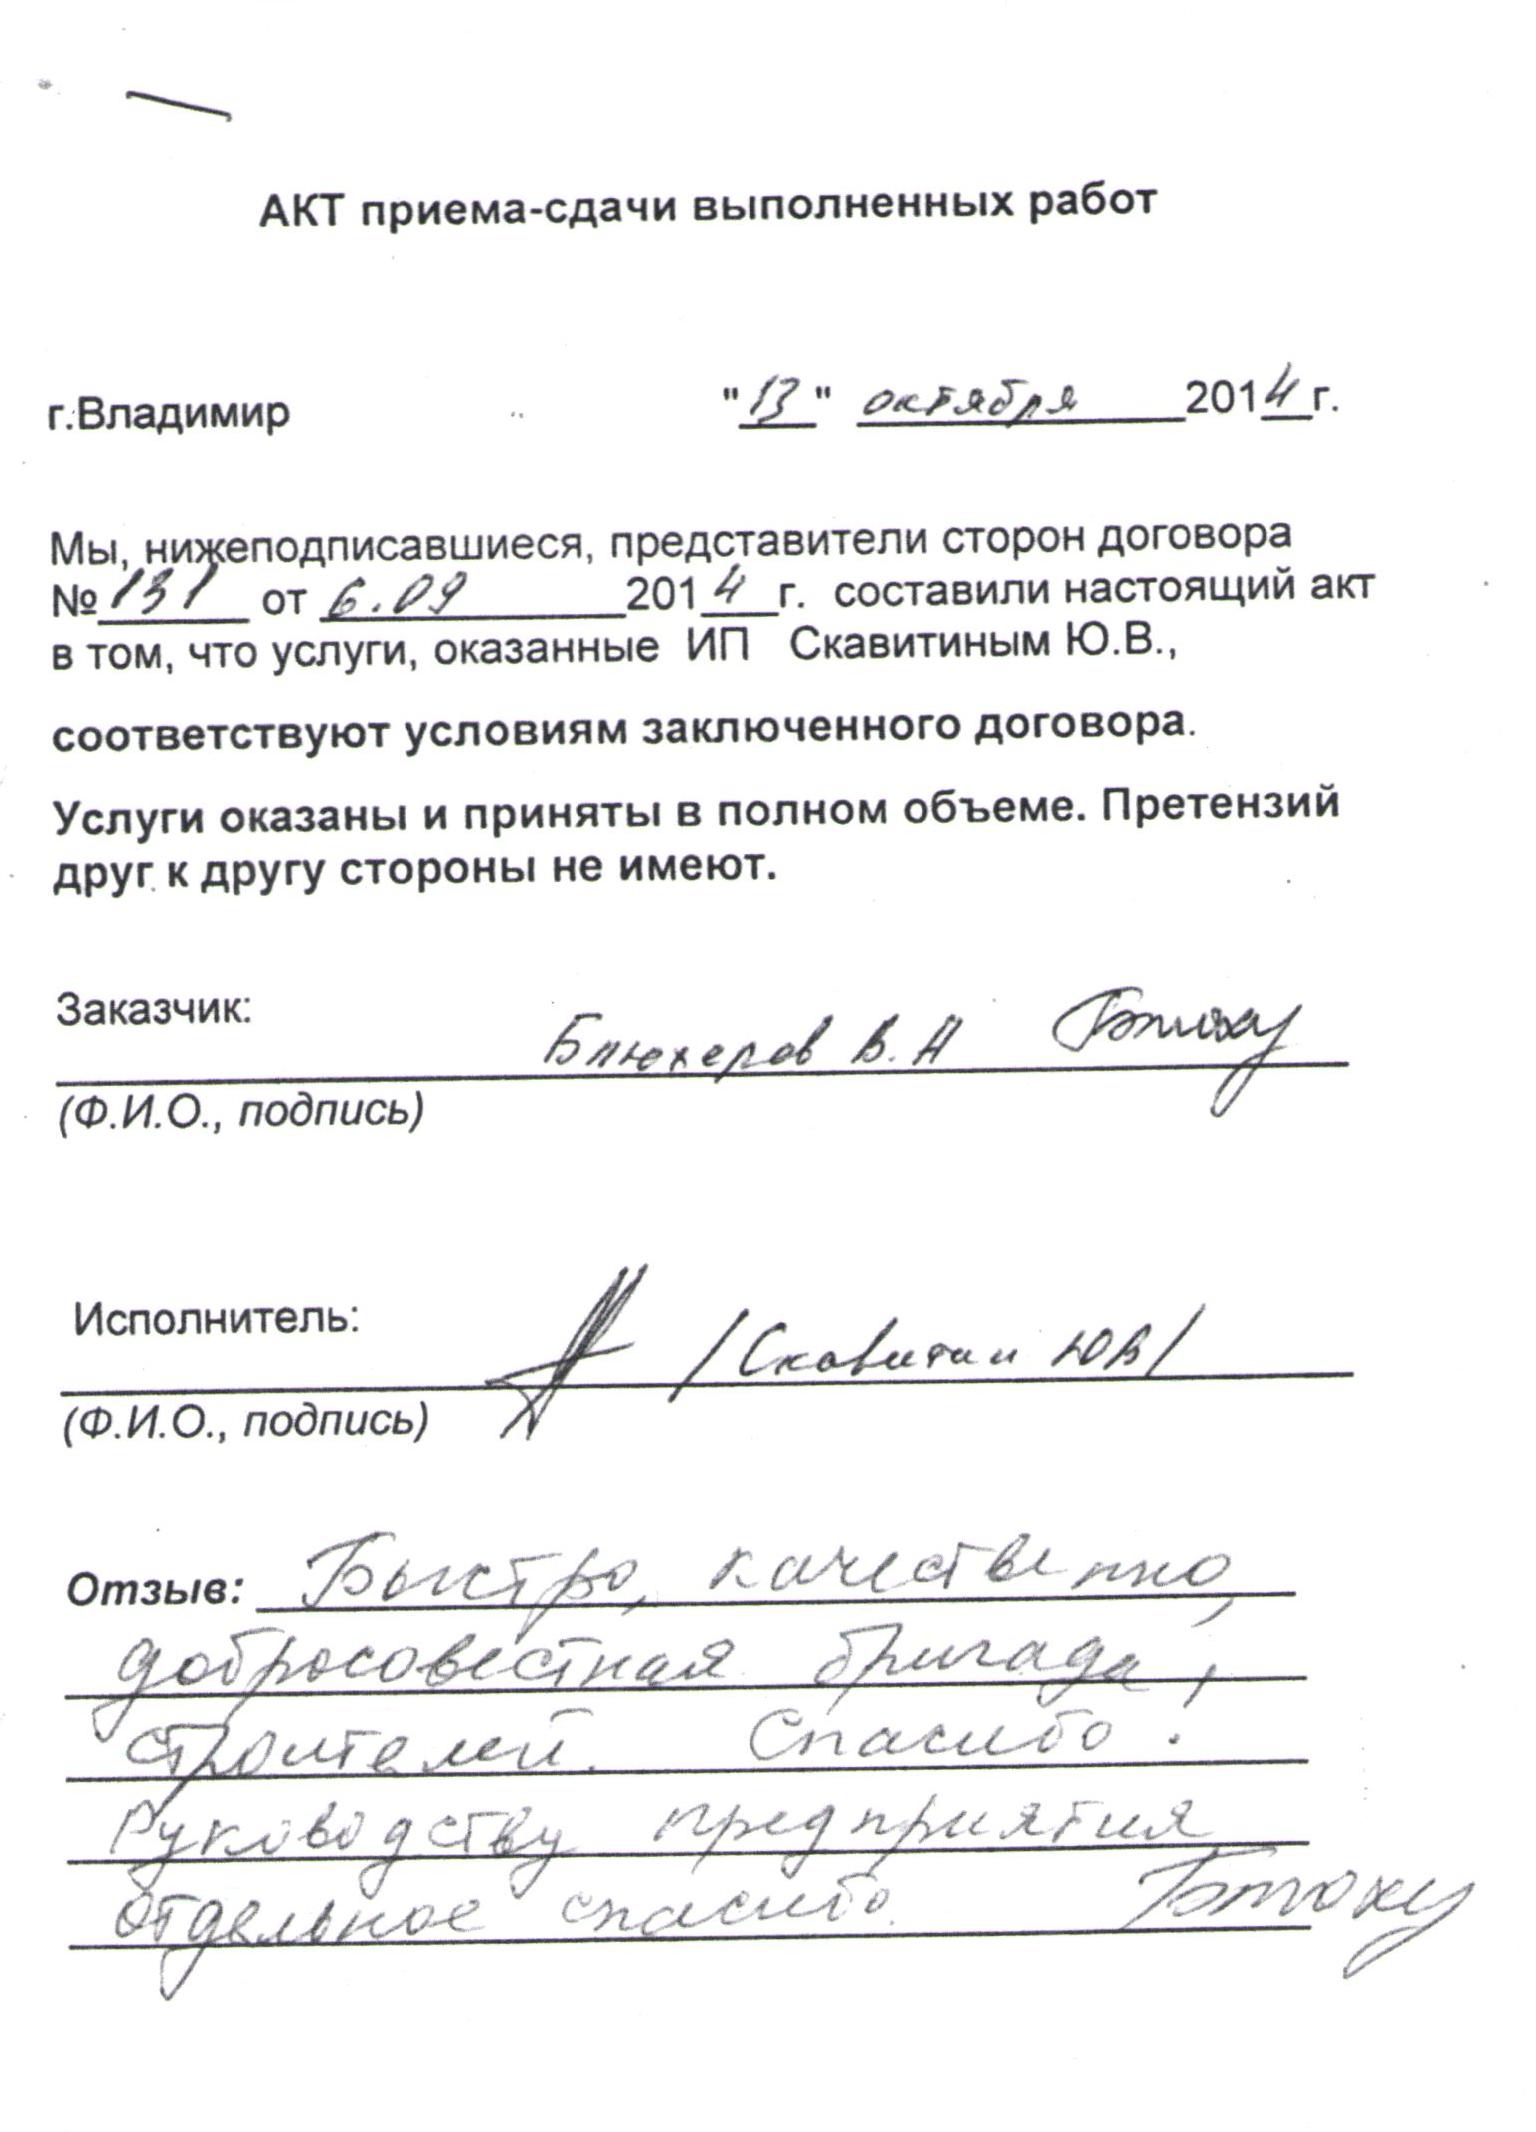 АКТ приема-сдачи выполненных работ
г.Владимир "13" октября 2014 г.
Мы, нижеподписавшиеся, представители сторон договора
№ 131 от 6.09 2014 г. составили настоящий акт
в том, что услуги, оказанные ИП Скавитиным Ю.В.,
соответствуют условиям заключенного договора.
Услуги оказаны и приняты в полном объеме. Претензий
друг к другу стороны не имеют.
Заказчик:
Блюхеров В.А
(Ф.И.О., подпись)
Исполнитель:
/Скавитин ЮВ/
(Ф.И.О., подпись)
Отзыв: Быстро, качественно,
добросовестная бригада,
строителей. Спасибо!
Руководству предприятия
отдельное спасибо.